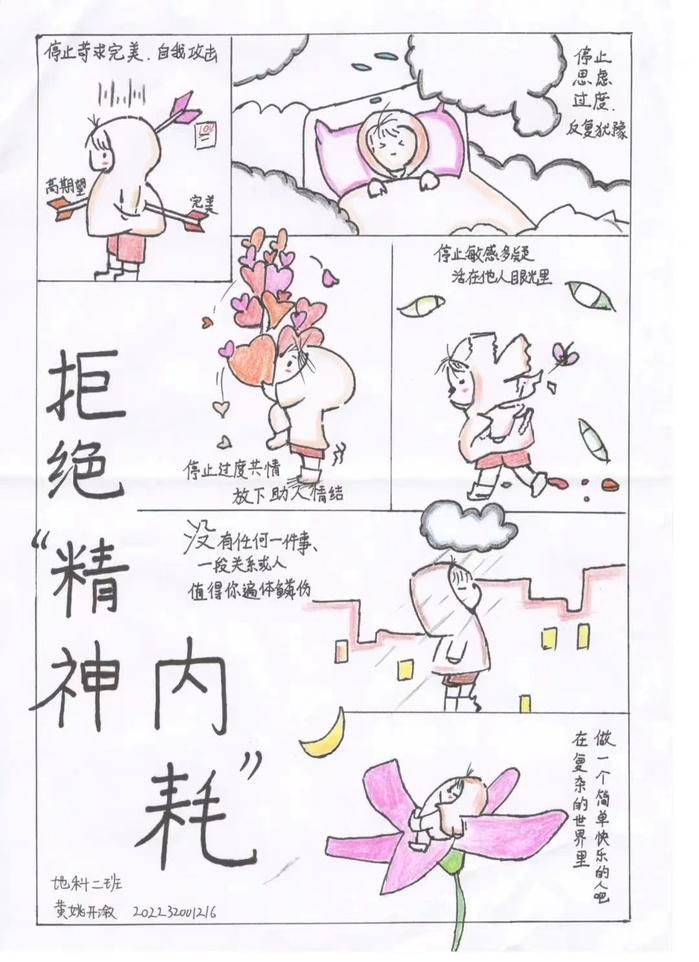 停止苛求完美、自我攻击
LOW
高期望
完美
停止
思虑
过度、
反复犹豫
停止过度共情
放下助人情结
停止敏感多疑
活在他人眼光里
没有任何一件事、
一段关系或人
值得你遍体鳞伤
做一个简单快乐的人吧
在复杂的世界里
拒绝
“精神
内耗”
地科二班
黄姚开溆 202232001216